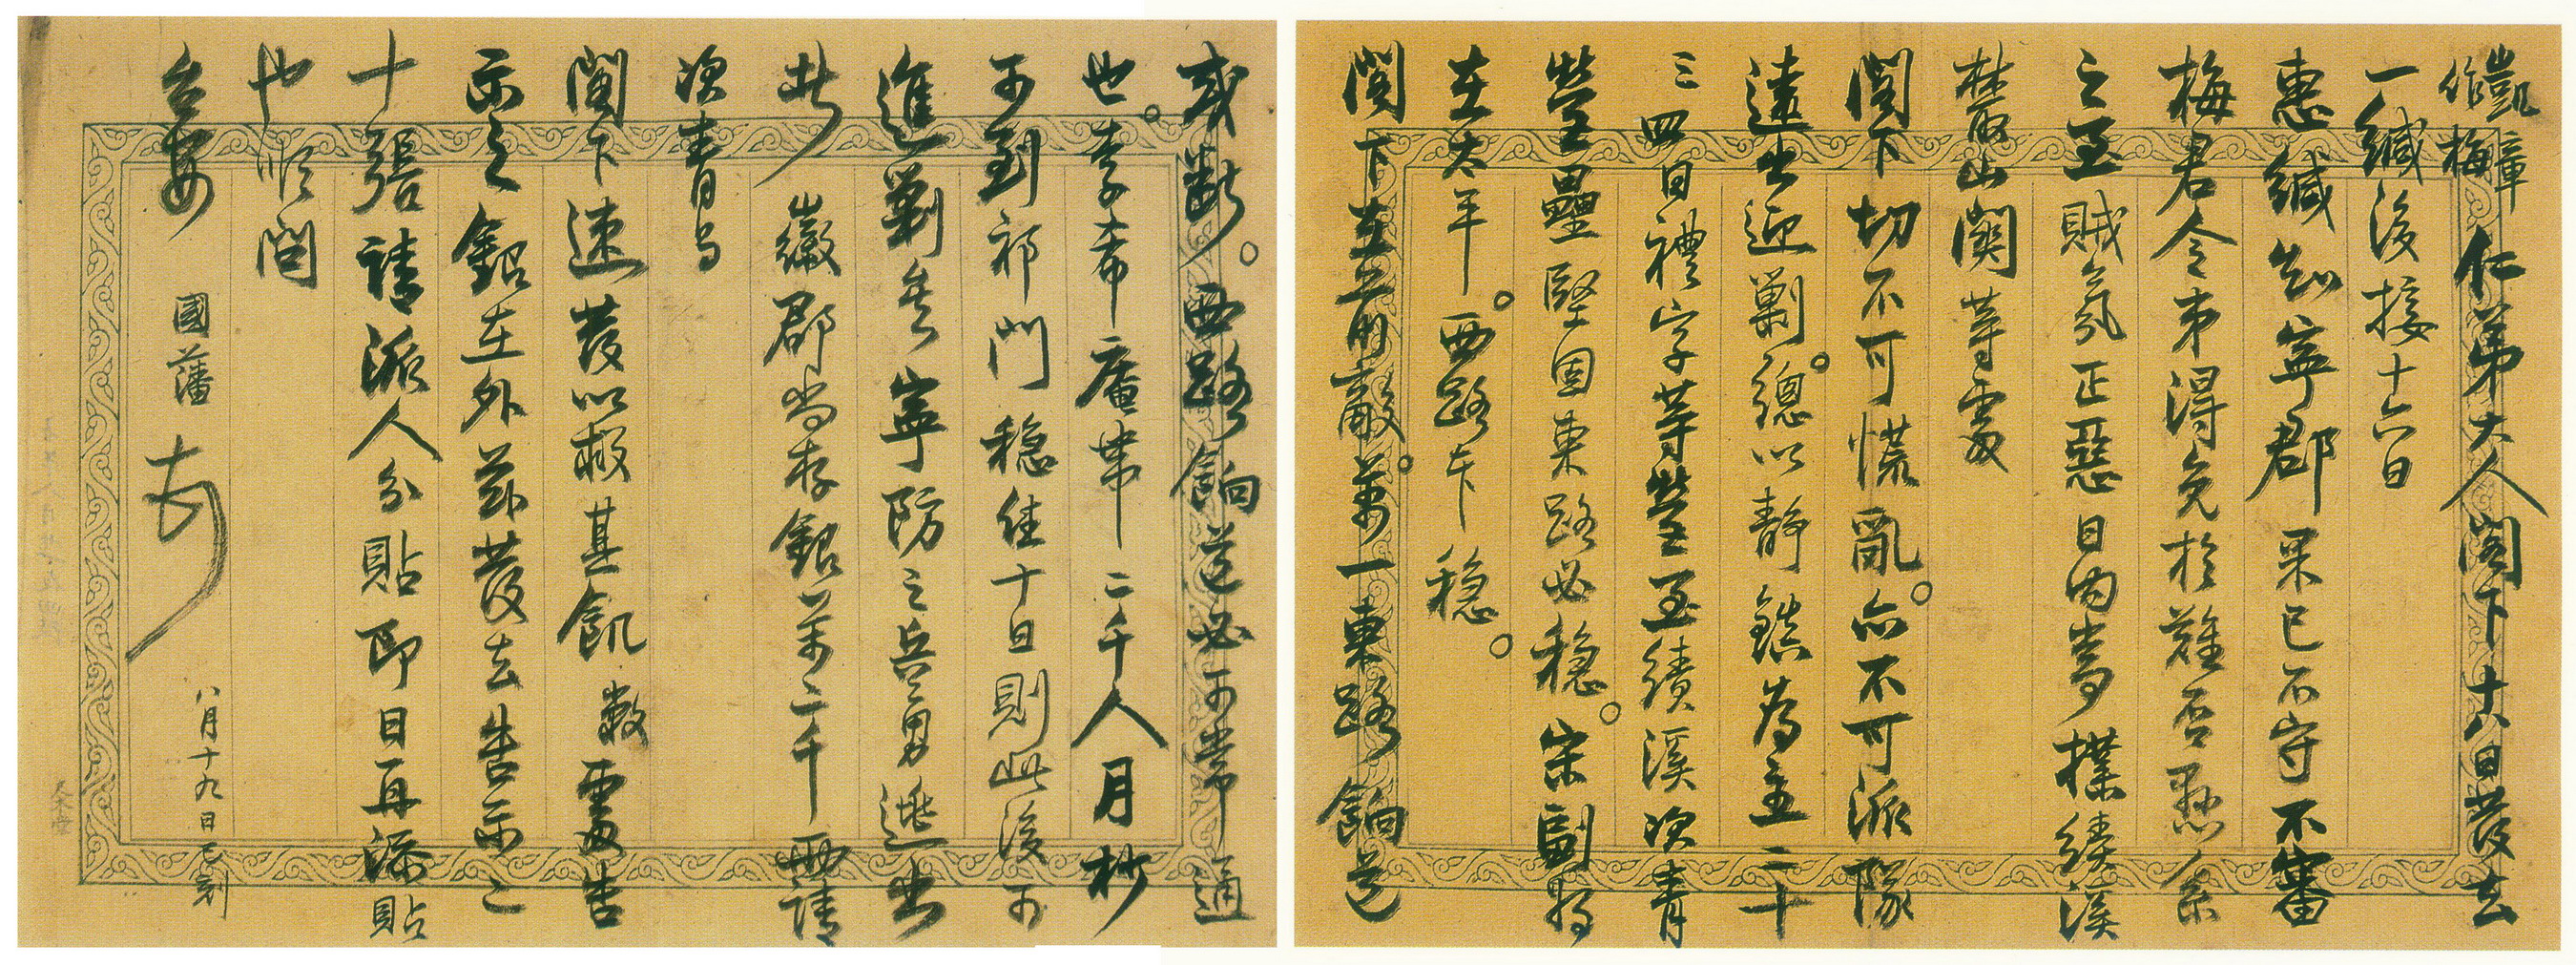 凱章
作梅仁弟大人閣下十八日發去
一緘後接十六日
惠緘知寧郡果已不守不審
梅君令弟得免於難否懸系
之至賊氛正惡日內當撲績溪
叢山關等處
閣下切不可慌亂。亦不可派隊
遠出迎剿。總以靜鎮為主二十
三四日禮字等營至績溪次青
營壘堅固東路必穩。宋副將
在太平。西路亦穩。
閣下在前敵。萬一東路餉道
或斷。西路餉道必可常通
也。李希庵帶二千人月杪
可到祁門穩住十日則此後可
進剿矣寧防之兵勇逃出
者 徽郡尚存銀萬二千兩請
次青與
閣下速發以救其飢 數處告
示之銀在外茲發去告示二
十張請派人分貼即日再添貼
也順問
台安
國藩 頓
八月十九日巳刻